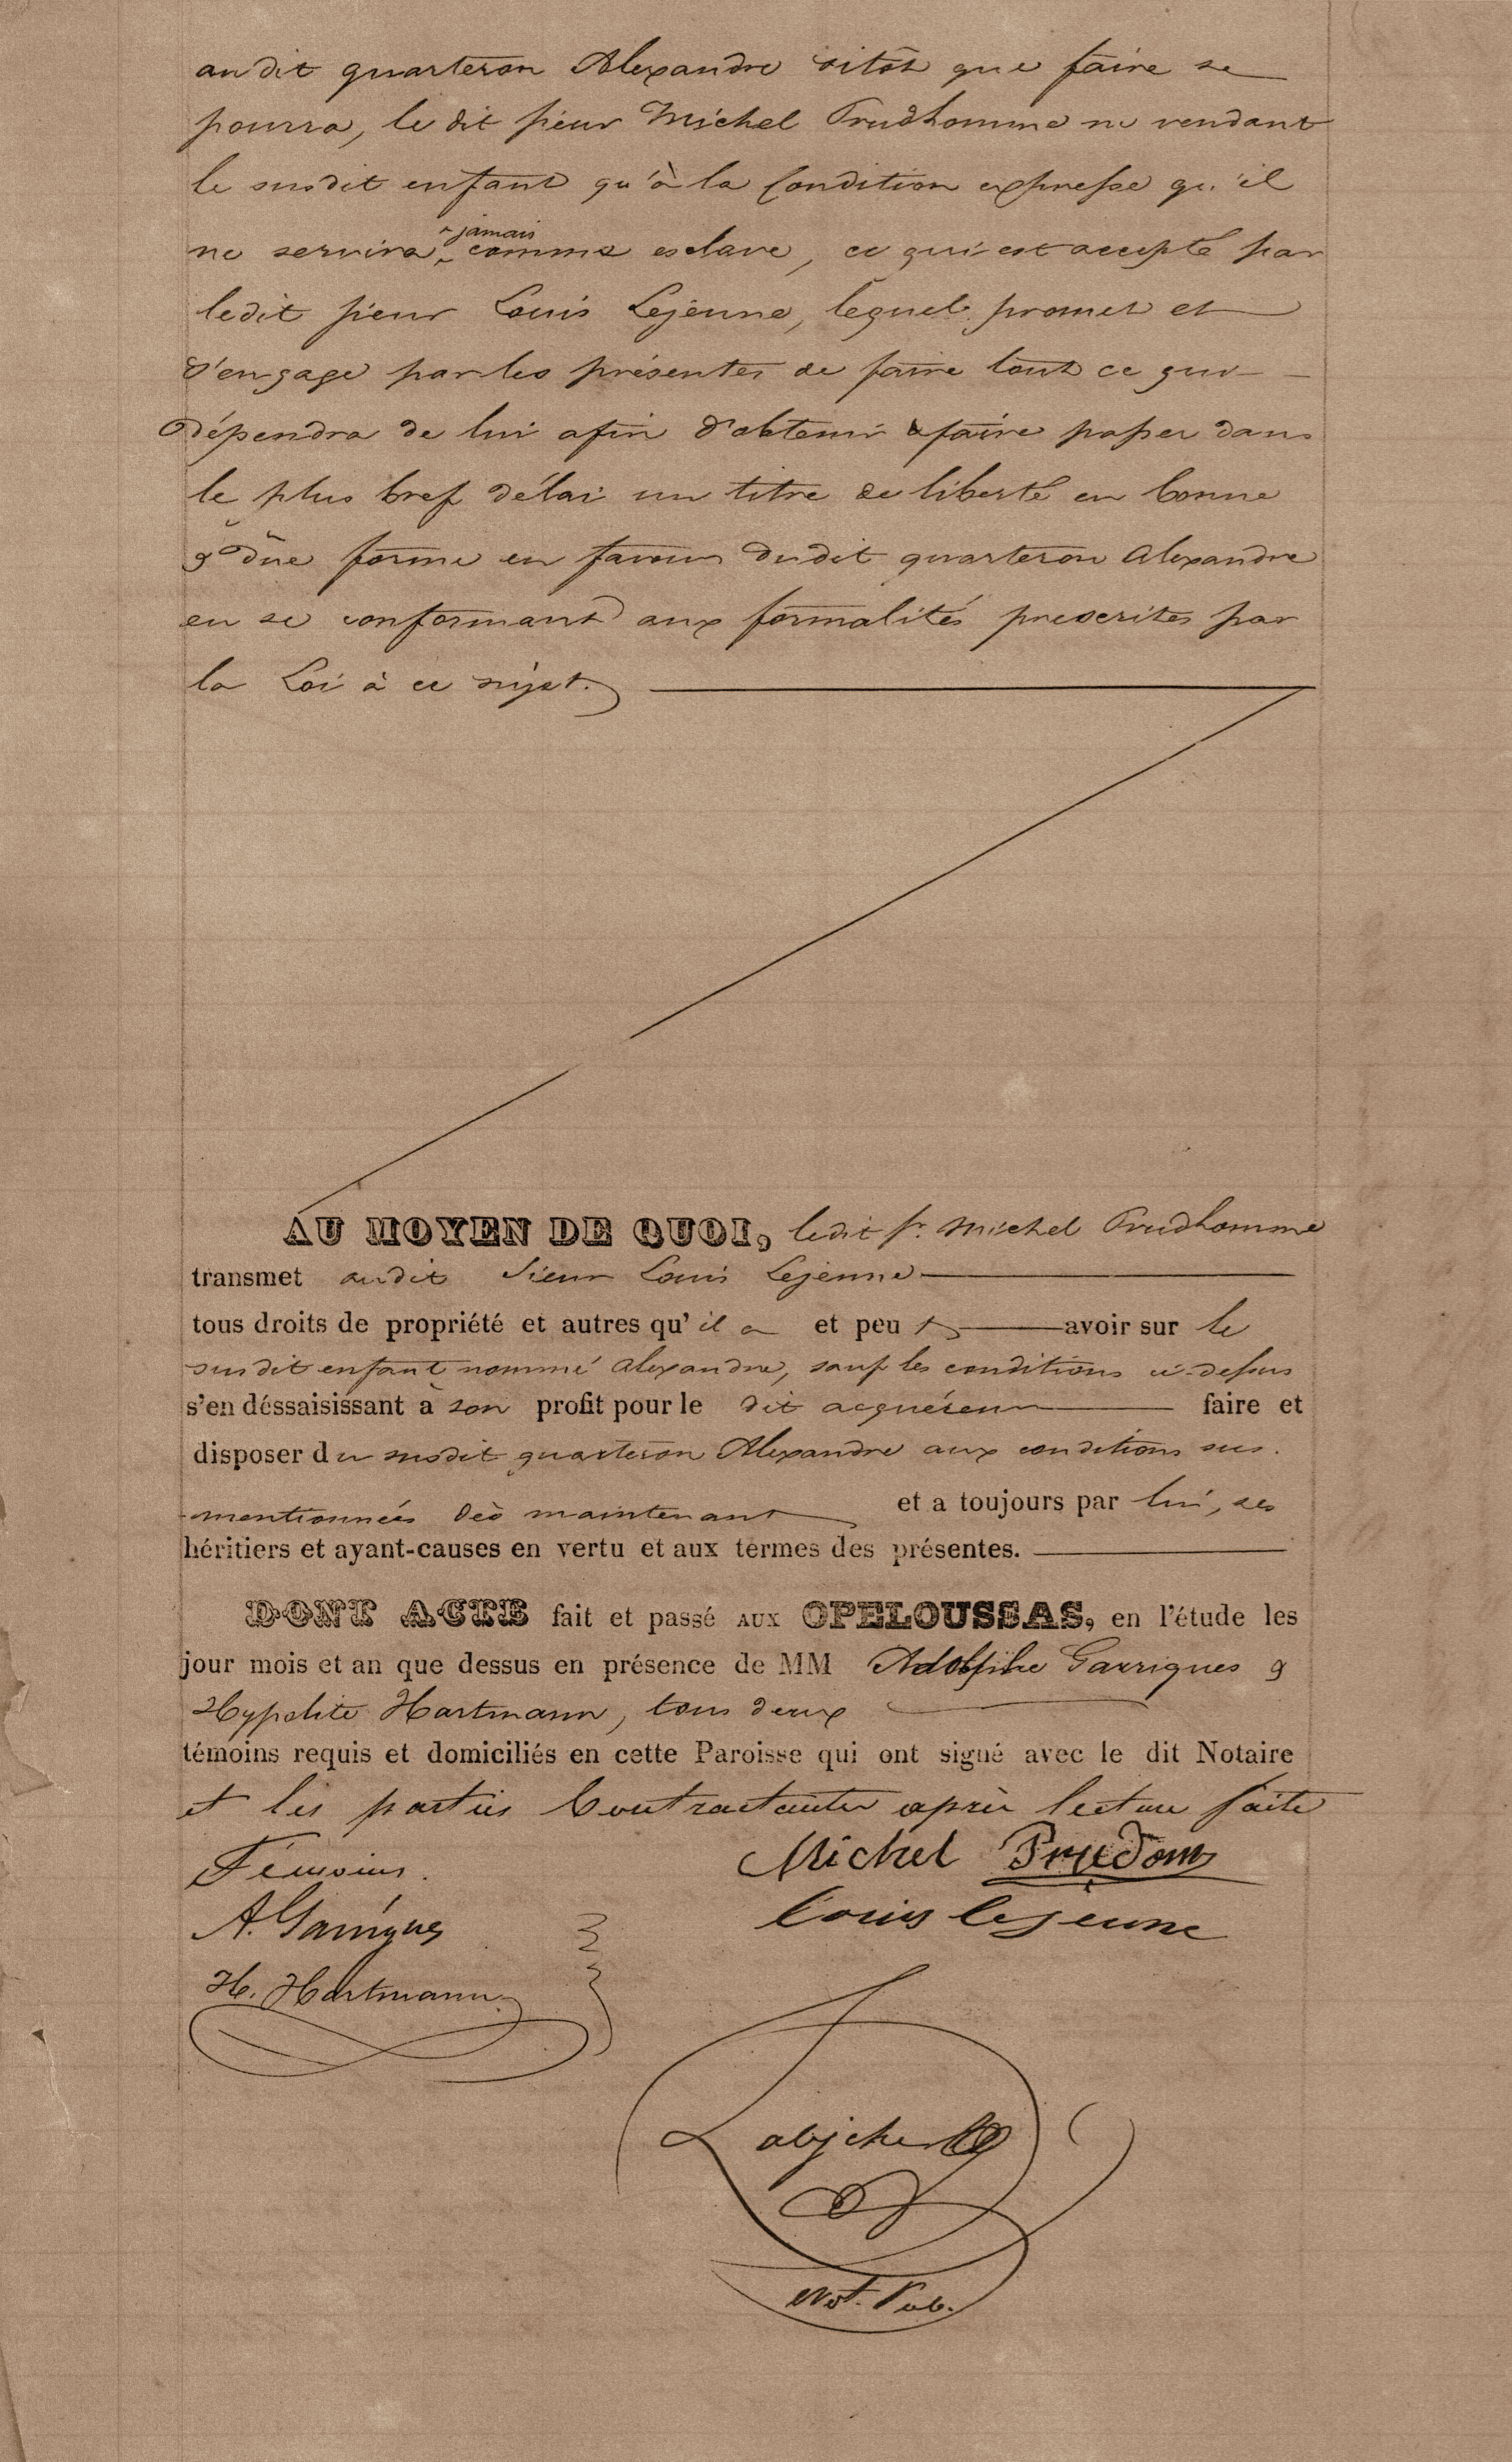 audit quarteron Alexandre sitôt que faire se
pourra, le dit sieur Michel Prudhomme ne vendant
le susdit enfant qu'à la Condition expresse qu'il
ne servira jamais comme esclave, ce qui est accepté par
ledit sieur Louis Lejeune, lequel promet et
s'engage par les présentes de faire tout ce qui
dépendra de lui afin d'obtenir & faire passer dans
le plus bref délai un titre de liberté en bonne
& düe forme en faveur dudit quarteron Alexandre
en se conformant aux formalités prescrites par
la Loi à ce sujet.
AU MOYEN DE QUOI, ledit Sr. Michel Prudhomme
transmet audit Sieur Louis Lejeune
tous droits de propriété et autres qu'il a et peut avoir sur le
susdit enfant nommé Alexandre, sauf les conditions ci-dessus
s'en déssaisissant à son profit pour le dit acquéreur faire et
disposer du susdit quarteron Alexandre aux conditions sus-
mentionnées dès maintenant et a toujours par lui, ses
héritiers et ayant-causes en vertu et aux termes des présentes.
DONT ACTE fait et passé AUX OPELOUSSAS, en l'étude les
jour mois et an que dessus en présence de MM Adolphe Garrigues &
Hypolite Hartmann, tous deux
témoins requis et domiciliés en cette Paroisse qui ont signé avec le dit Notaire
et les parties Contractantes après lecture faite
Témoins.
Michel Prudom
A. Garrigues
Louis lejeune
H. Hartmann
Not. Pub.